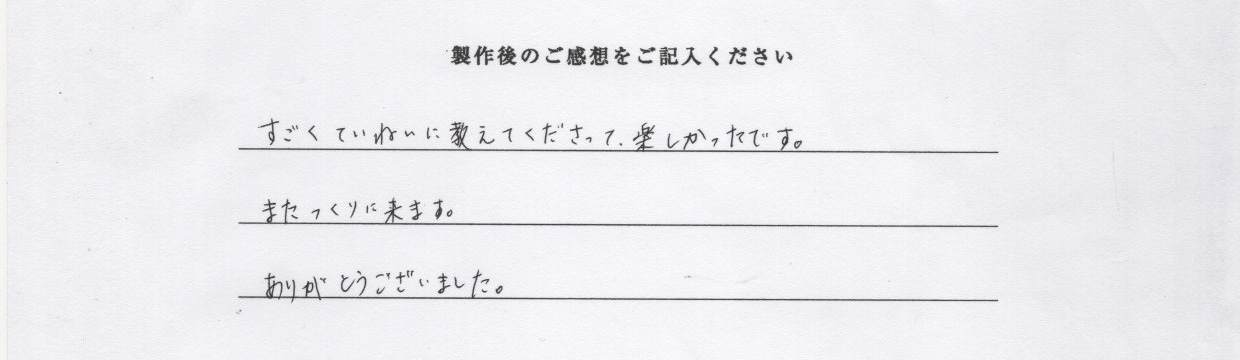 製作後のご感想をご記入ください
すごくていねいに教えてくださって、楽しかったです。
またつくりに来ます。
ありがとうございました。